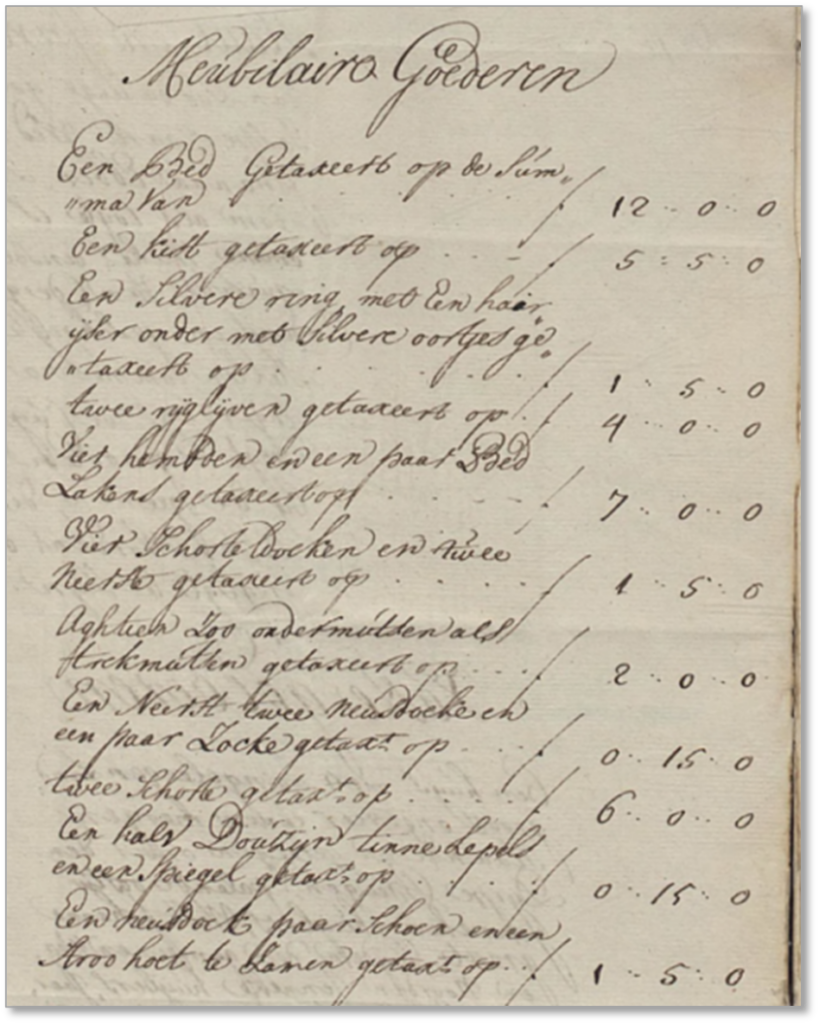 Meubilaire Goederen
Een Bed Getaxeert op de Sum„
„ma van . . . . . 12 „ 0 „ 0
Een kist getaxeert op . . . 5 : 5 : 0
Een Silvere ring, met Een hair
ijser onder met Silvere oortjes ge„
„taxeert op . . . . . 1 „ 5 „ 0
twee rijglijven getaxeert op . . 4 „ 0 „ 0
Vier hembden en een paar Bed
Lakens getaxeert op . . . . 7 „ 0 „ 0
Vier Schorteldoeken en twee
Neerst getaxeert op . . . . 1 „ 5 „ 0
Aghtien Zoo ondermutsen als
strekmutsen getaxeert op . . . 2 „ 0 „ 0
Een Neerst twee neusdoeke en
een paar Zocke getaxt. op . . . 0 „ 15 „ 0
twee Schorte getaxt. op . . . . 6 „ 0 „ 0
Een halv Douzijn tinne Lepels
en een Spiegel getaxt. op . . . 0 „ 15 „ 0
Een neusdoek paar Schoen en een
Stroo hoet te Zamen getaxt. op . . 1 „ 5 „ 0